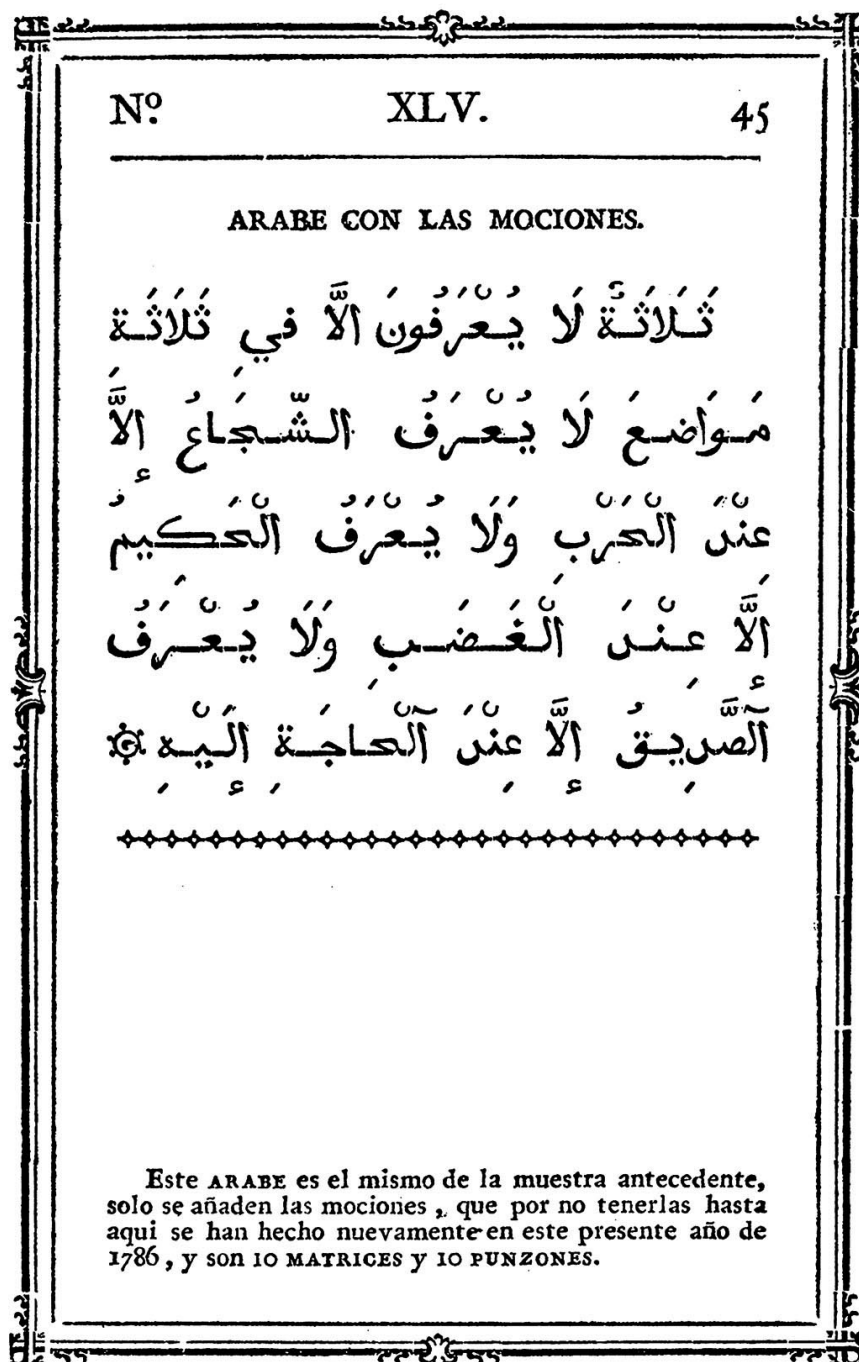 Nº. XLV. 45
ARABE CON LAS MOCIONES.
ثَلَاثَةٌ لَا يُعْرَفُونَ الَّا فِي ثَلَاثَة
مَوَاضِعَ لَا يُعْرَفُ الشّجَاعُ إلَّا
عِنْدَ الْحَرْبِ وَلَا يُعْرَفُ الْحَكِيمُ
إلَّا عِنْدَ الْغَضَبِ وَلَا يُعْرَفُ
ٱلصَّدِيقُ إلَّا عِنْدَ ٱلْحاجَةِ إلَيْهِ
Este ARABE es el mismo de la muestra antecedente,
solo se añaden las mociones, que por no tenerlas hasta
aqui se han hecho nuevamente en este presente año de
1786, y son 10 MATRICES y 10 PUNZONES.